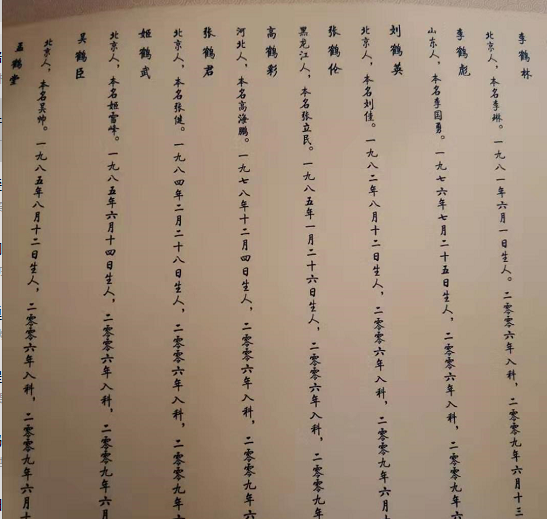 李鹤林
北京人，本名李琳。一九八一年六月一日生人。二零零六年入科，二零零九年六月十三
李鹤彪
山东人，本名李国勇。一九七六年七月二十五日生人，二零零六年入科，二零零九年六
刘鹤英
北京人，本名刘佳。一九八二年八月十二日生人，二零零六年入科，二零零九年六月十
张鹤伦
黑龙江人，本名张立民。一九八五年一月二十六日生人，二零零六年入科，二零零九年
高鹤彩
河北人，本名高海鹏。一九七八年十二月四日生人，二零零六年入科，二零零九年六月
张鹤君
北京人，本名张健。一九八四年二月二十八日生人，二零零六年入科，二零零九年六月十
姬鹤武
北京人，本名姬雪峰。一九八五年六月十四日生人，二零零六年入科，二零零九年六月十
吴鹤臣
北京人，本名吴帅。一九八五年八月十二日生人，二零零六年入科，二零零九年六月十
孟鹤堂